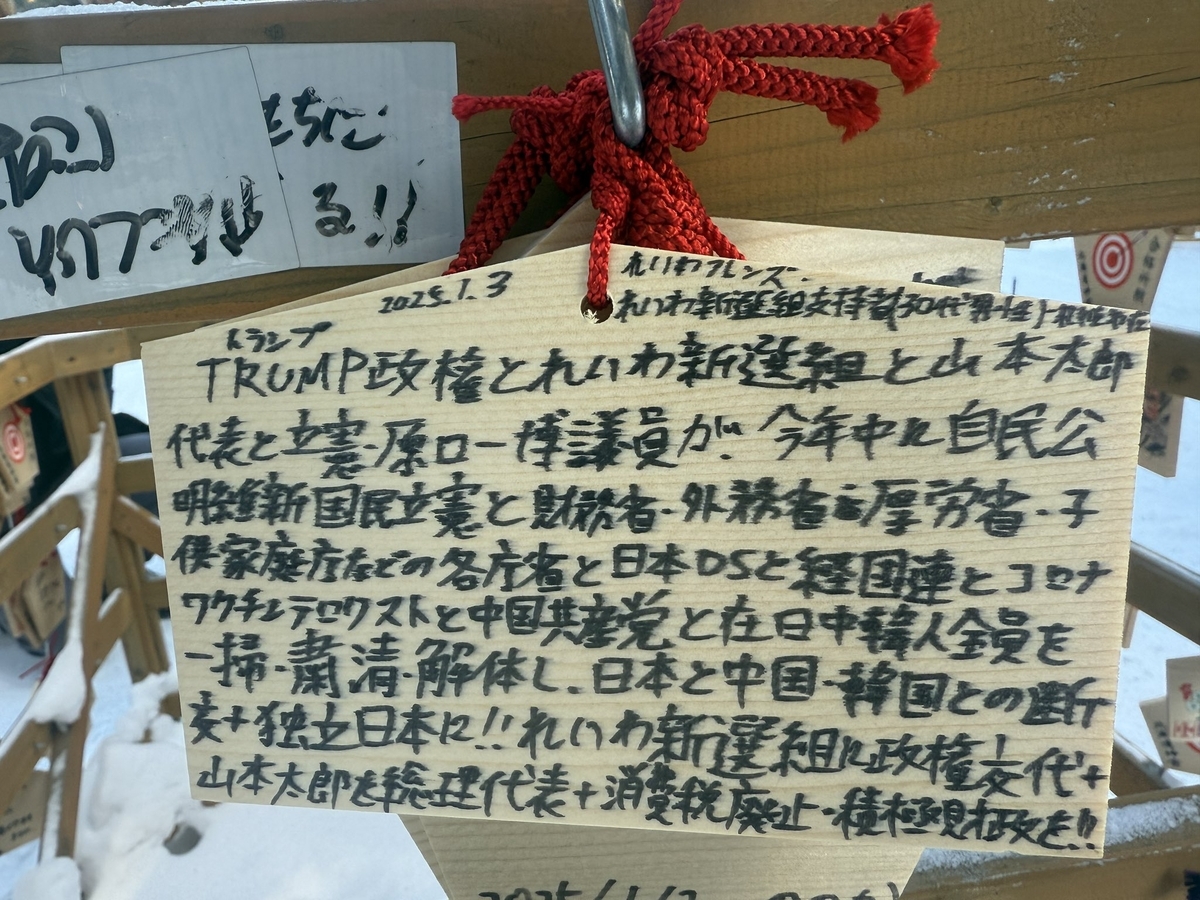 もちこ
る!!
2025.1.3
れいわフレンズ.
れいわ新選組支持者(30代男性)
トランプ
TRUMP政権とれいわ新選組と山本太郎
代表と立憲・原口一博議員が、今年中に自民公
明維新国民立憲と財務省・外務省・厚労省・子
供家庭庁などの各庁省と日本DSと経団連とコロナ
ワクチンテロリストと中国共産党と在日中韓人全員を
一掃・粛清・解体し、日本と中国・韓国との断
交+独立日本に!!れいわ新選組に政権交代+
山本太郎を総理代表+消費税廃止・積極財政を!!